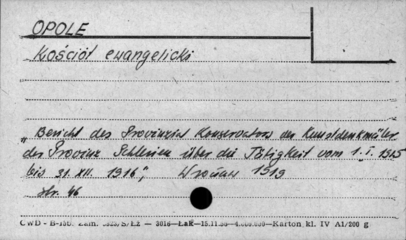 OPOLE
Kościół ewangelicki
„Bericht des Provinzial Konservators der Kunstdenkmäler
der Provinz Schlesien über die Tätigkeit vom 1. I. 1915
bis 31. XII. 1916", Wrocław 1919
str. 46
CWD - B-156. Zam. S/Łż — 3016—ŁaK—15.11.50—4.000.000—Karton kl. IV A1/200 g